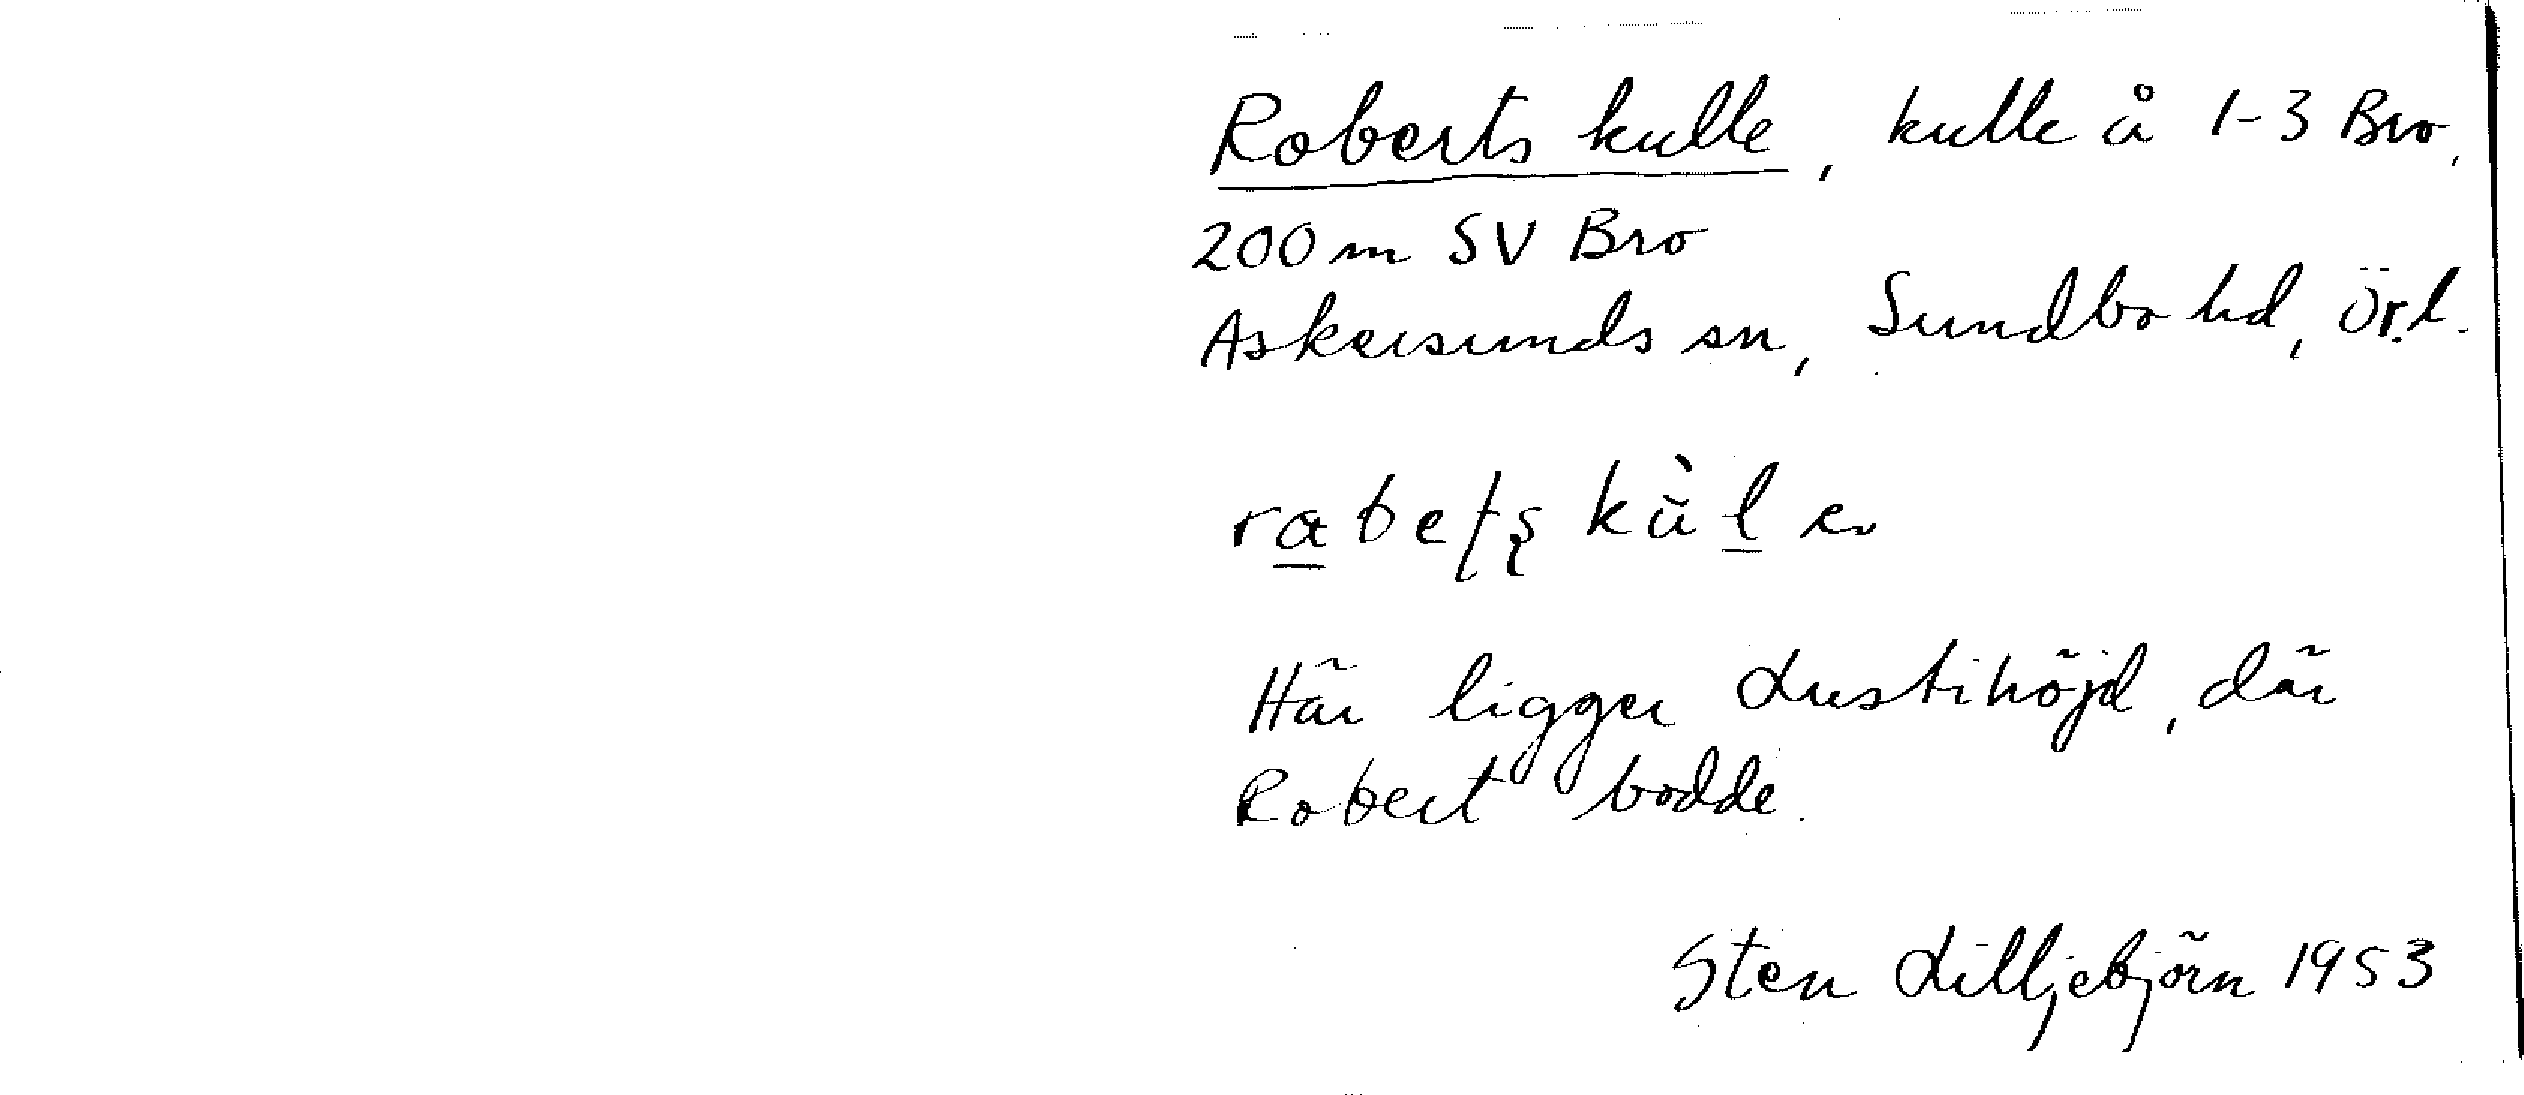 Roberts kulle, kulle å 1-3 Bro,
200 m SV Bro
Askersunds sn, Sundbo hd, Ör.l.
Här ligger Lustihöjd, där
Robert bodde.
Sten Lilljebjörn 1953